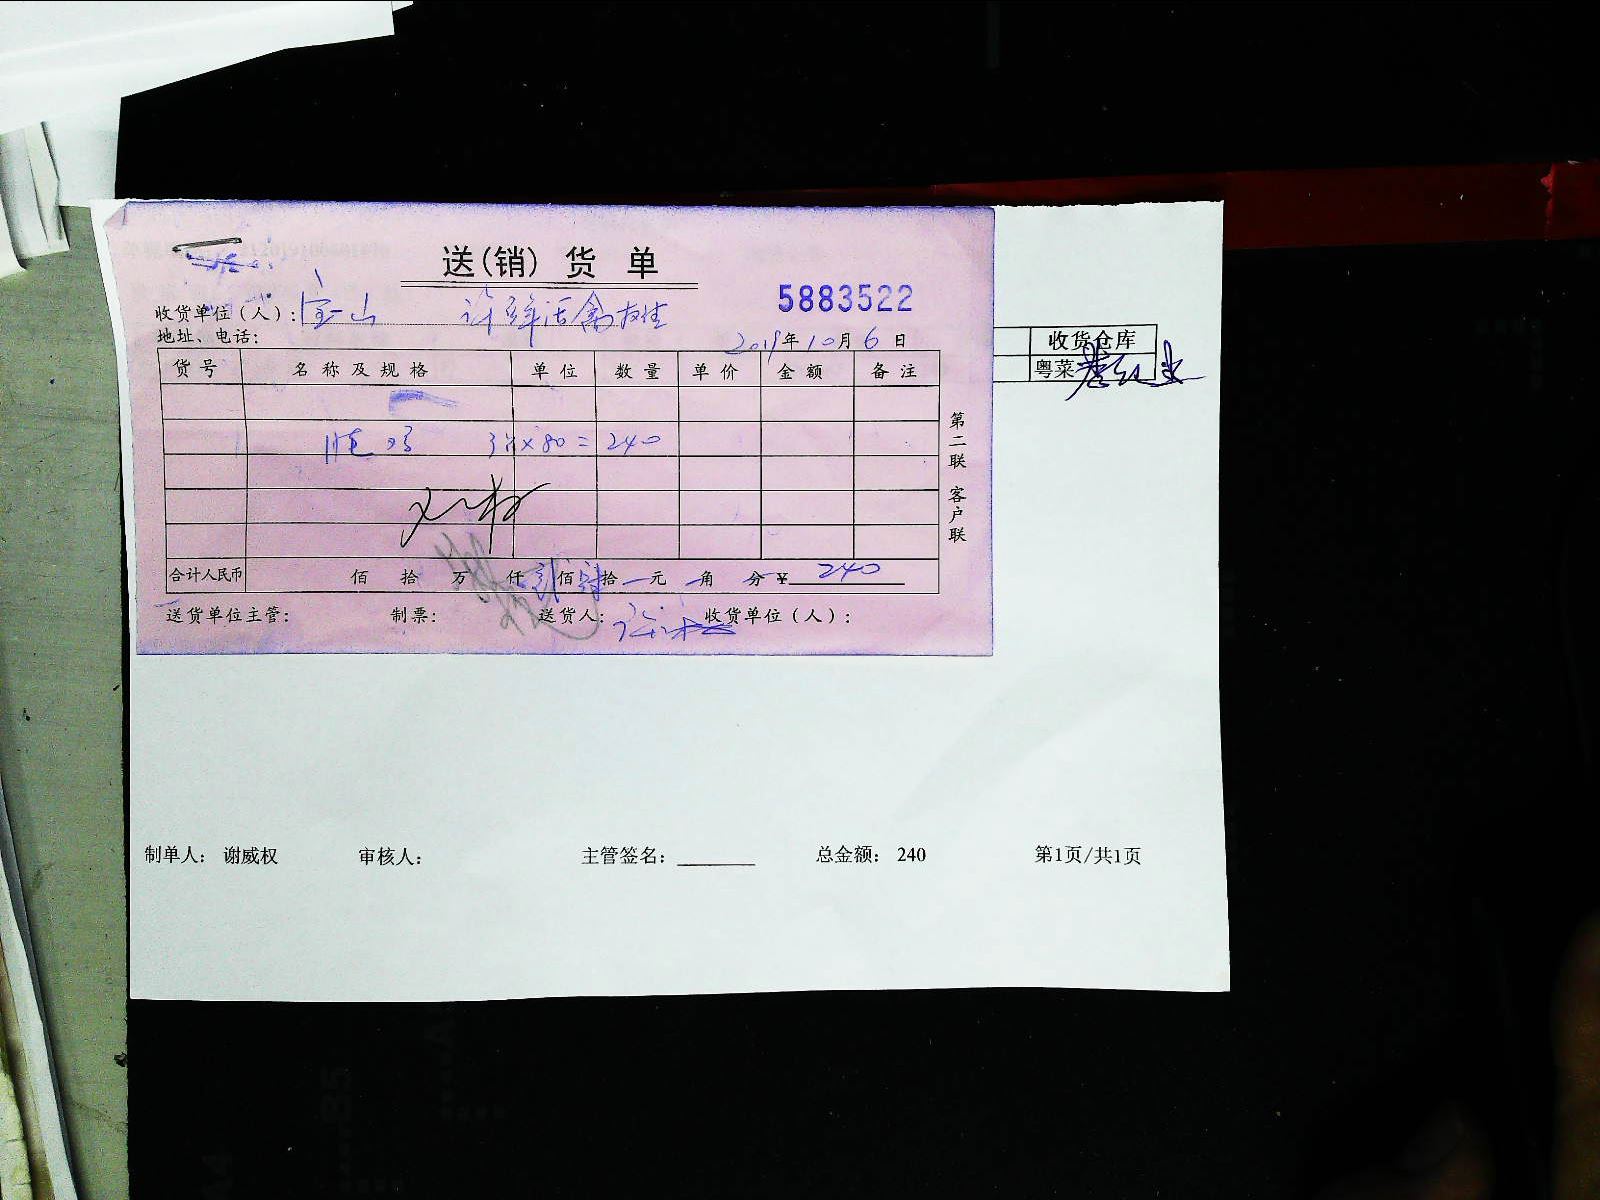 送(销)货单
5883522
收货单位(人): 宝山
地址、电话:
2019年10月6日
收货仓库
粤菜
货号 名称及规格 单位 数量 单价 金额 备注
3只×80=240
第二联 客户联
合计人民币 佰 拾 万 仟 贰佰 肆拾 元 角 分 ¥240
送货单位主管: 制票: 送货人: 收货单位(人):
制单人: 谢威权 审核人: 主管签名: 总金额: 240 第1页/共1页